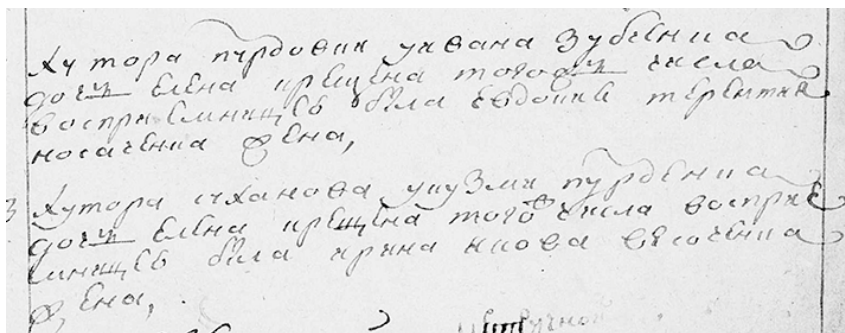 хутора пурдовки уивана зубченка
дочь елена крещена того ж числа
восприемницею была евдокия терентия
носаченка жена,
хутора у кузми пурденка
дочь елена крещена того ж числа восприе
мницею была ирина якова височенка
жена,